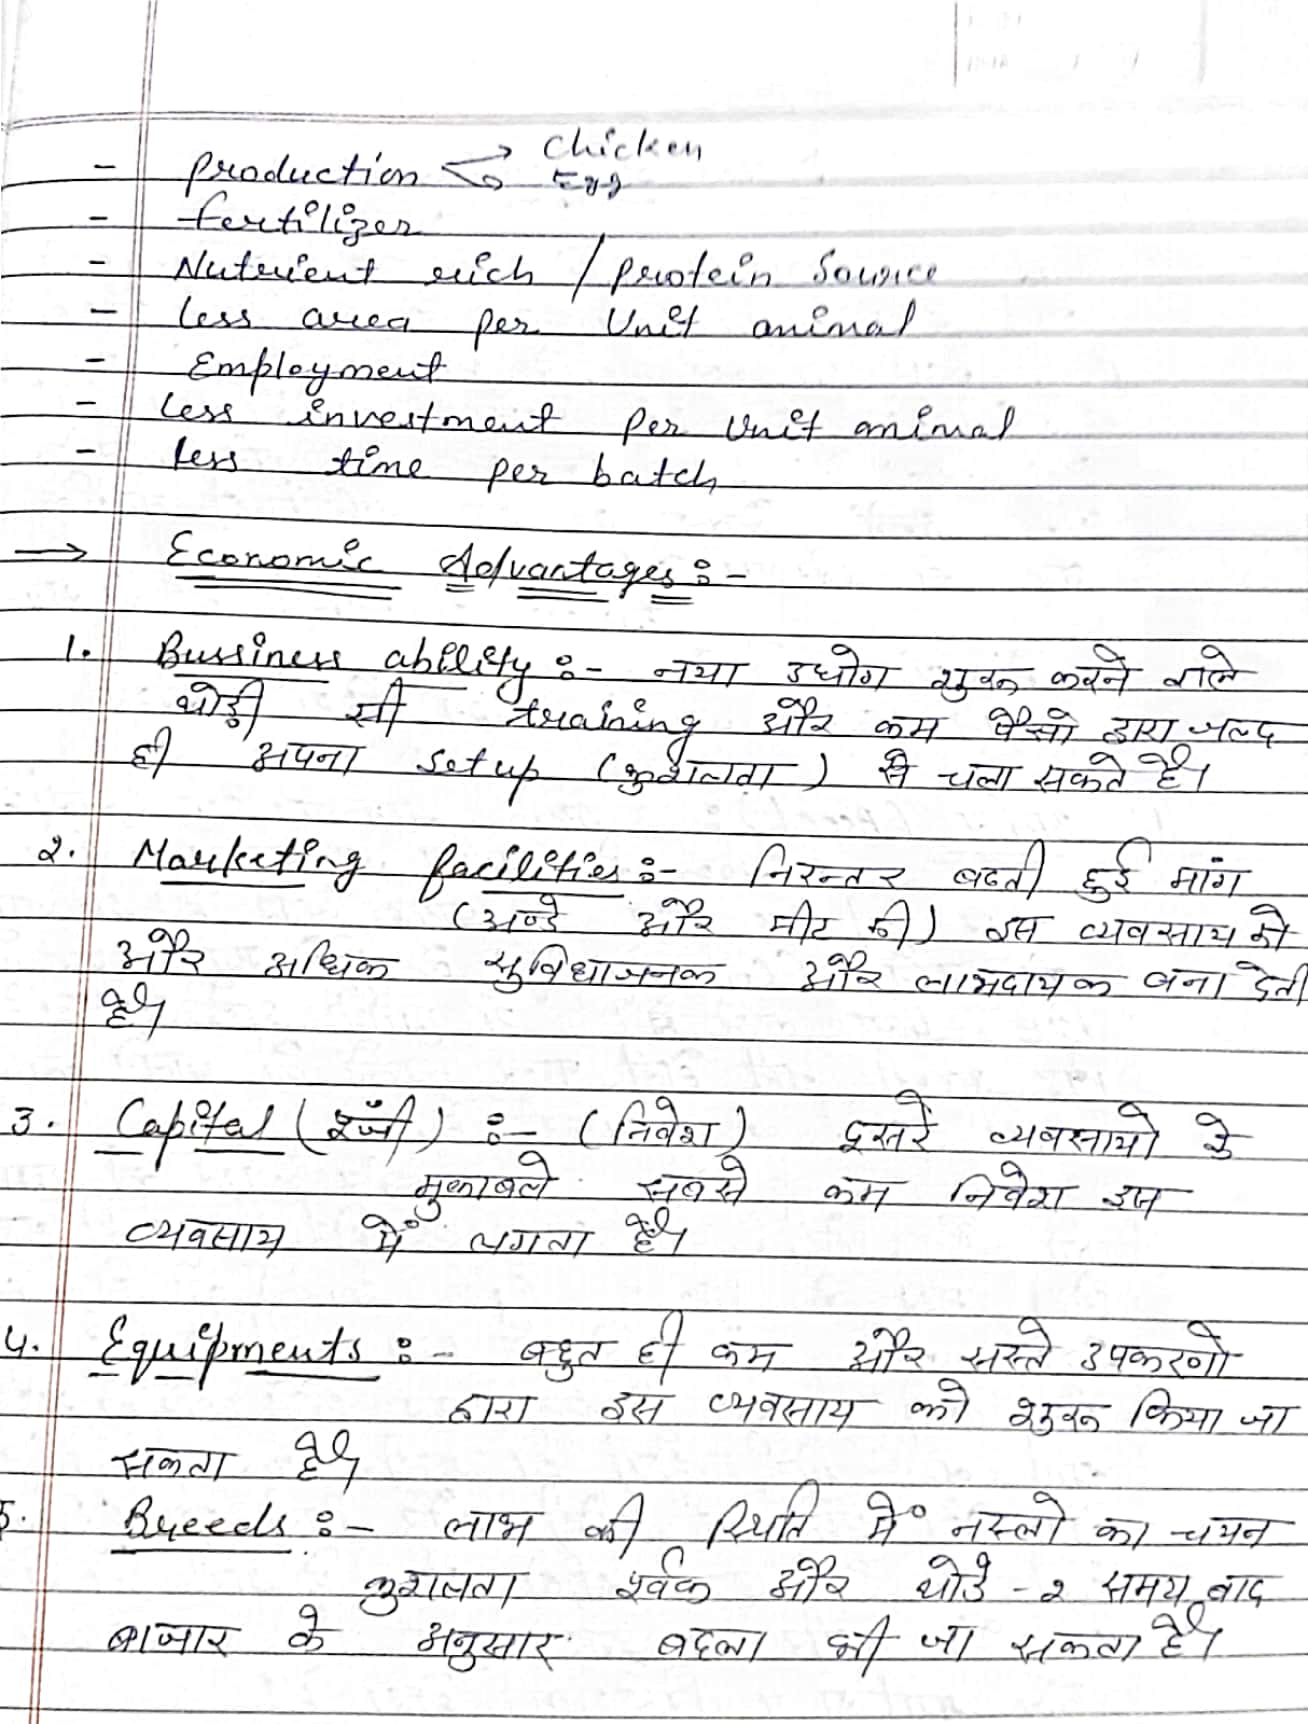 - Production → Chicken
→ Egg
- fertilizer
- Nutrient rich / Protein Source
- Less area per Unit animal
- Employment
- Less investment Per Unit animal
- Less time per batch
→ Economic Advantages :-
1. Bussiness ability :- नया उधोग शुरू करने वाले
थोड़ी सी training और कम पैसो द्वारा जल्द
ही अपना setup (कुशलता) से चला सकते है।
2. Marketing facilities :- निरन्तर बढती हुई मांग
(अण्डे और मीट की) इस व्यवसाय को
और अधिक सुविधाजनक और लाभदायक बना देती
है।
3. Capital (पूँजी) :- (निवेश) दूसरे व्यवसायो के
मुकाबले सबसे कम निवेश इस
व्यवसाय में लगता है।
4. Equipments :- बहुत ही कम और सस्ते उपकरणो
द्वारा इस व्यवसाय को शुरू किया जा
सकता है।
5. Breeds :- लाभ की स्थिति में नस्लो का चयन
कुशलता पूर्वक और थोडे -२ समय बाद
बाजार के अनुसार बदला भी जा सकता है।